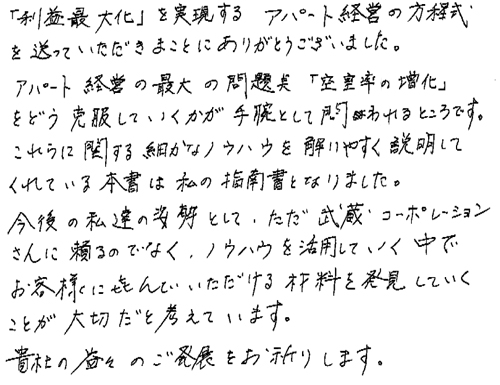 「利益最大化」を実現する アパート経営の方程式
を送っていただきまことにありがとうございました。
アパート経営の最大の問題点「空室率の増化」
をどう克服していくかが手腕として問われるところです。
これらに関する細かなノウハウを解りやすく説明して
くれている本書は私の指南書となりました。
今後の私達の姿勢として、ただ武蔵コーポレーション
さんに頼るのでなく、ノウハウを活用していく中で
お客様に喜んでいただける材料を発見していく
ことが大切だと考えています。
貴社の益々のご発展をお祈りします。